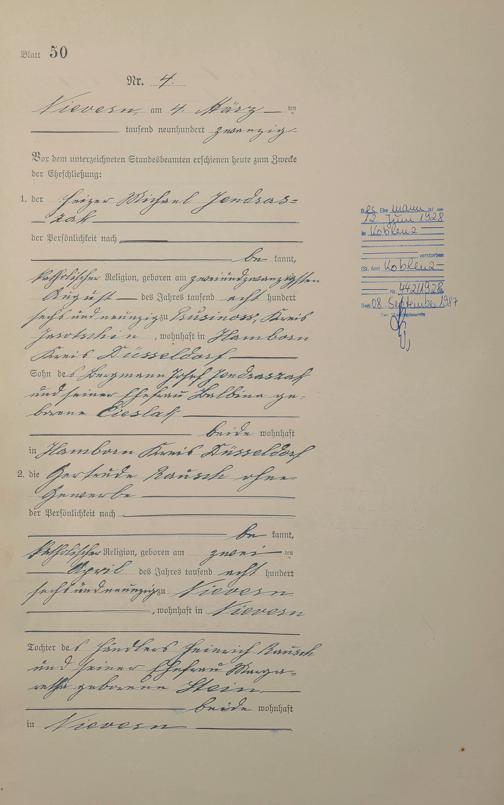 Blatt 50
Nr. 4.
Nievern, am 4. März ten
tausend neunhundert zwanzig.
Vor dem unterzeichneten Standesbeamten erschienen heute zum Zwecke
der Eheschließung:
1. der Heizer Michael Jendras=
zak
der Persönlichkeit nach
be kannt,
katholischer Religion, geboren am zweiundzwanzigsten
August des Jahres tausend acht hundert
sechs und neunzig zu Rusinow, Kreis
Jarotschin, wohnhaft in Hamborn
Kreis Düsseldorf
Sohn des Bergmann Josef Jendraszak
und seiner Ehefrau Balbina ge=
borene Cieslak
beide wohnhaft
in Hamborn Kreis Düsseldorf
2. die Gertrude Rausch ohne
Gewerbe
der Persönlichkeit nach
be kannt,
katholischer Religion, geboren am zwei ten
April des Jahres tausend acht hundert
sechs und neunzig zu Nievern
, wohnhaft in Nievern
Tochter des Händlers Heinrich Rausch
und seiner Ehefrau Marga=
retha geborene Stein
beide wohnhaft
in Nievern
Der Ehemann ist am
12. Juni 1928
in Koblenz
verstorben
(St. Amt Koblenz
Nr. 442/1928
Den 08. September 1987